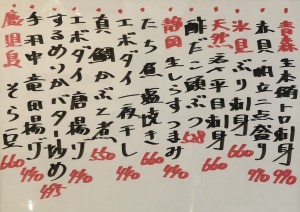 青森 生本鮪トロ刺身 990
赤貝・帆立二点盛り 990
氷見 ぶり刺身 660
天然 えぞ平目刺身 660
酢だこ頭ぶつ 528
静岡 生しらすつまみ 440
たち魚塩焼き 660
エボダイ一夜干し 440
真鯛かぶと煮 550
エボダイ唐揚げ 440
するめいかバター炒め 495
手羽中竜田揚げ 440
鹿児島 そら豆 660